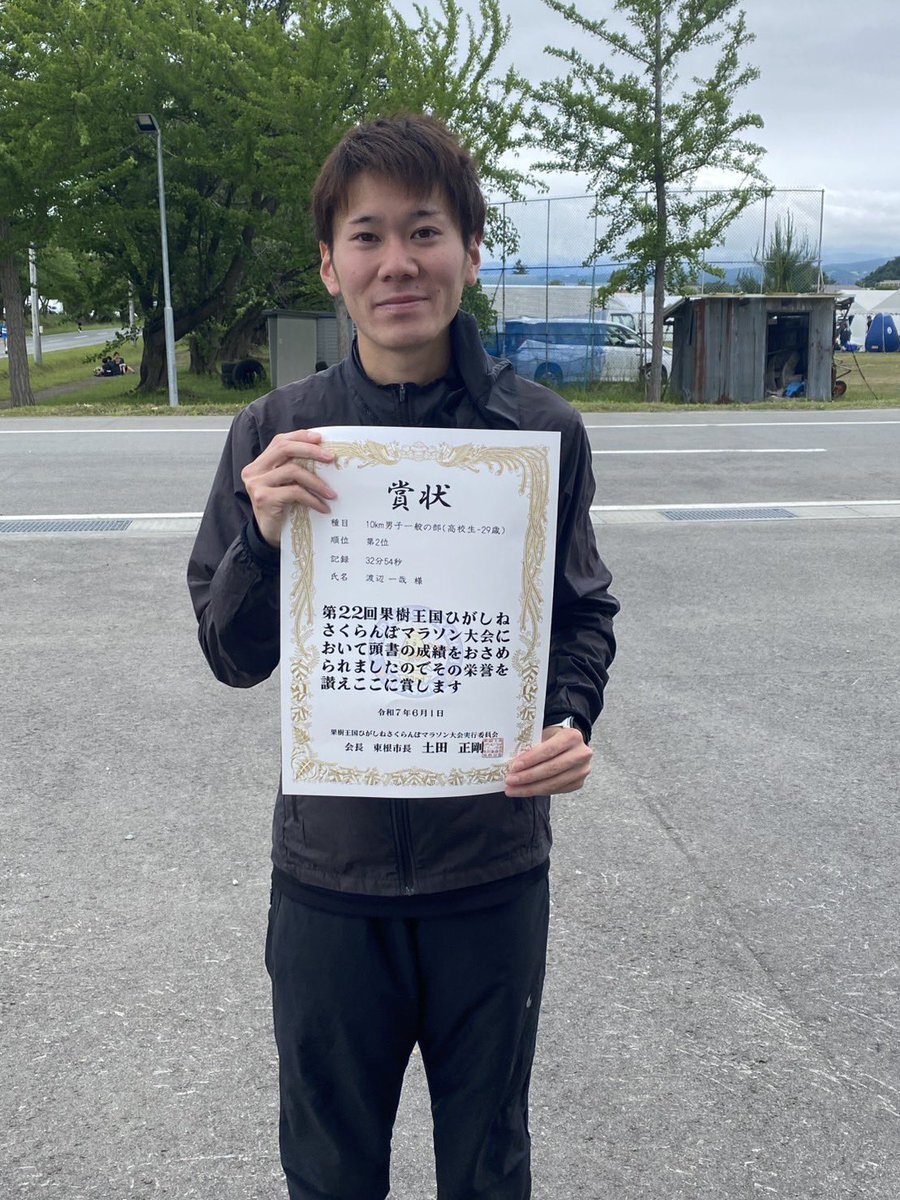 賞状
種目 10km男子一般の部(高校生-29歳)
順位 第2位
記録 32分54秒
氏名 渡辺 一哉 様
第22回果樹王国ひがしね
さくらんぼマラソン大会に
おいて頭書の成績をおさめ
られましたのでその栄誉を
讃えここに賞します
令和7年6月1日
果樹王国ひがしねさくらんぼマラソン大会実行委員会
会長 東根市長 土田 正剛